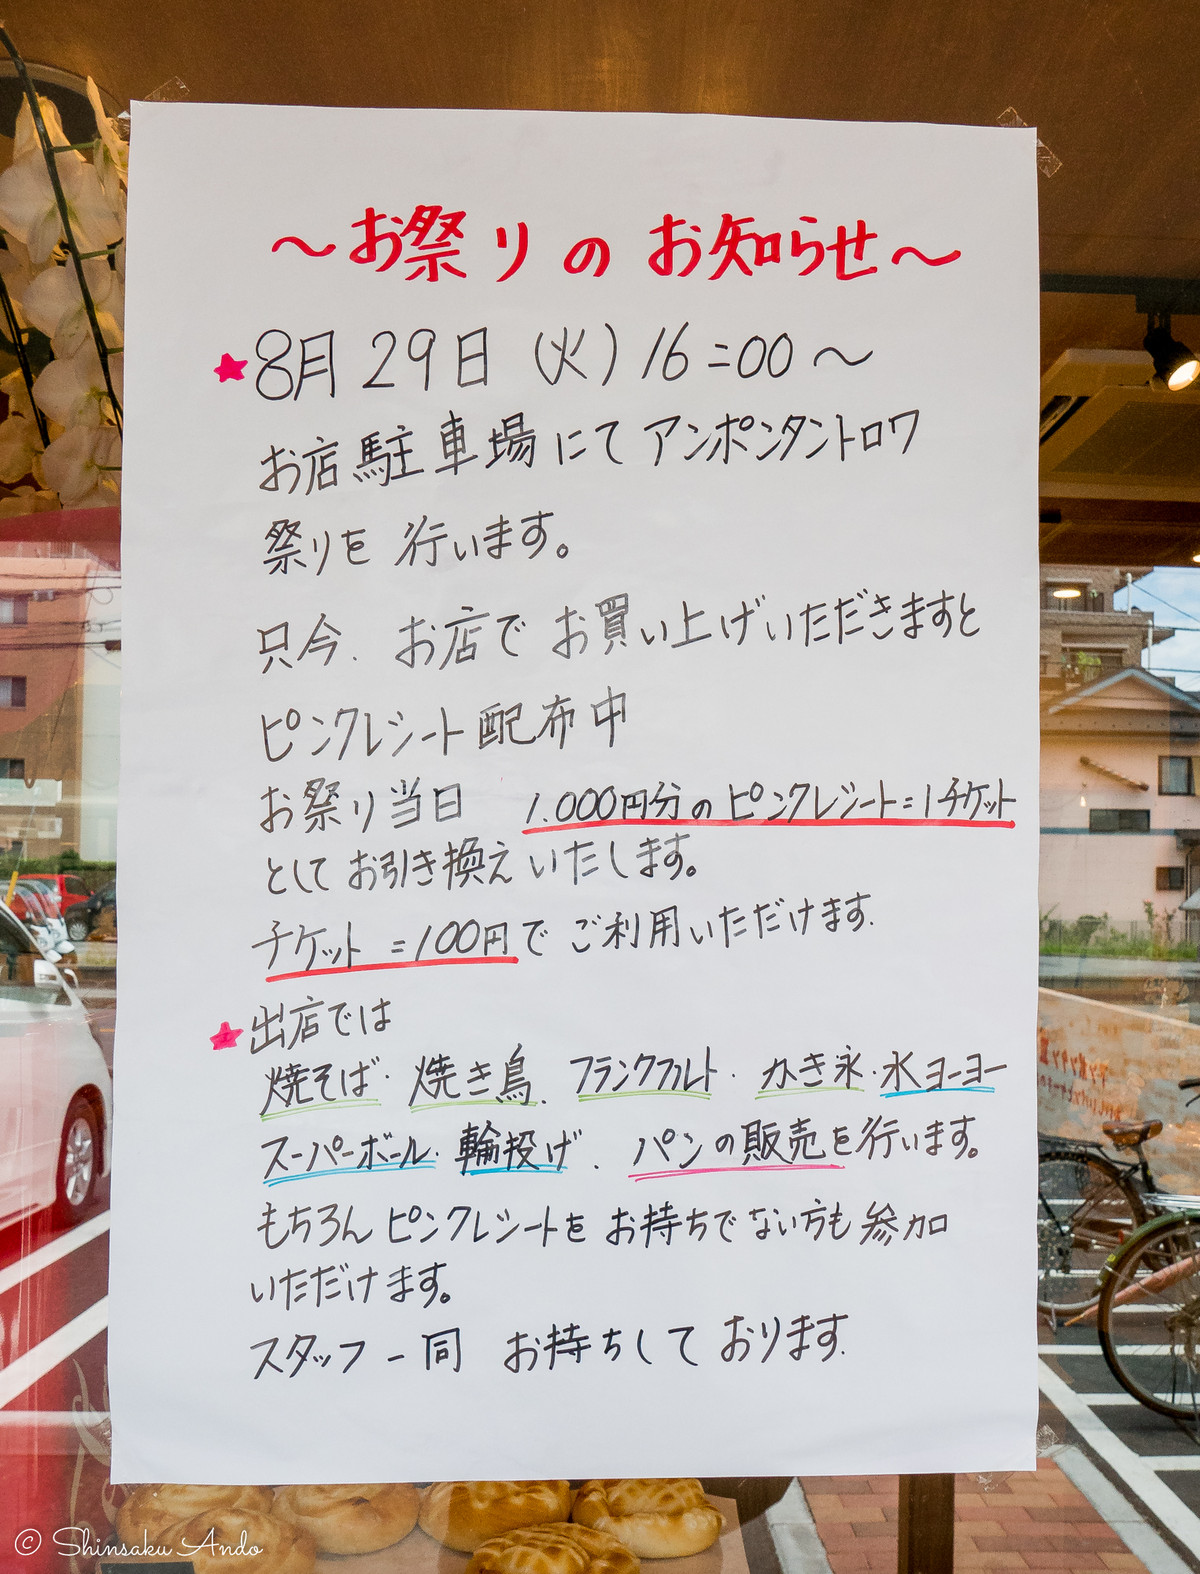 ～お祭りのお知らせ～
★8月29日(火)16:00～
お店駐車場にてアンポンタントロワ
祭りを行います。
只今、お店でお買い上げいただきますと
ピンクレシート配布中
お祭り当日 1.000円分のピンクレシート=1チケット
としてお引き換えいたします。
チケット=100円でご利用いただけます.
★出店では
焼そば・焼き鳥.フランクフルト・かき氷・水ヨーヨー
スーパーボール・輪投げ.パンの販売を行います。
もちろんピンクレシートをお持ちでない方も参加
いただけます。
スタッフ一同 お持ちしております.
© Shinsaku Ando